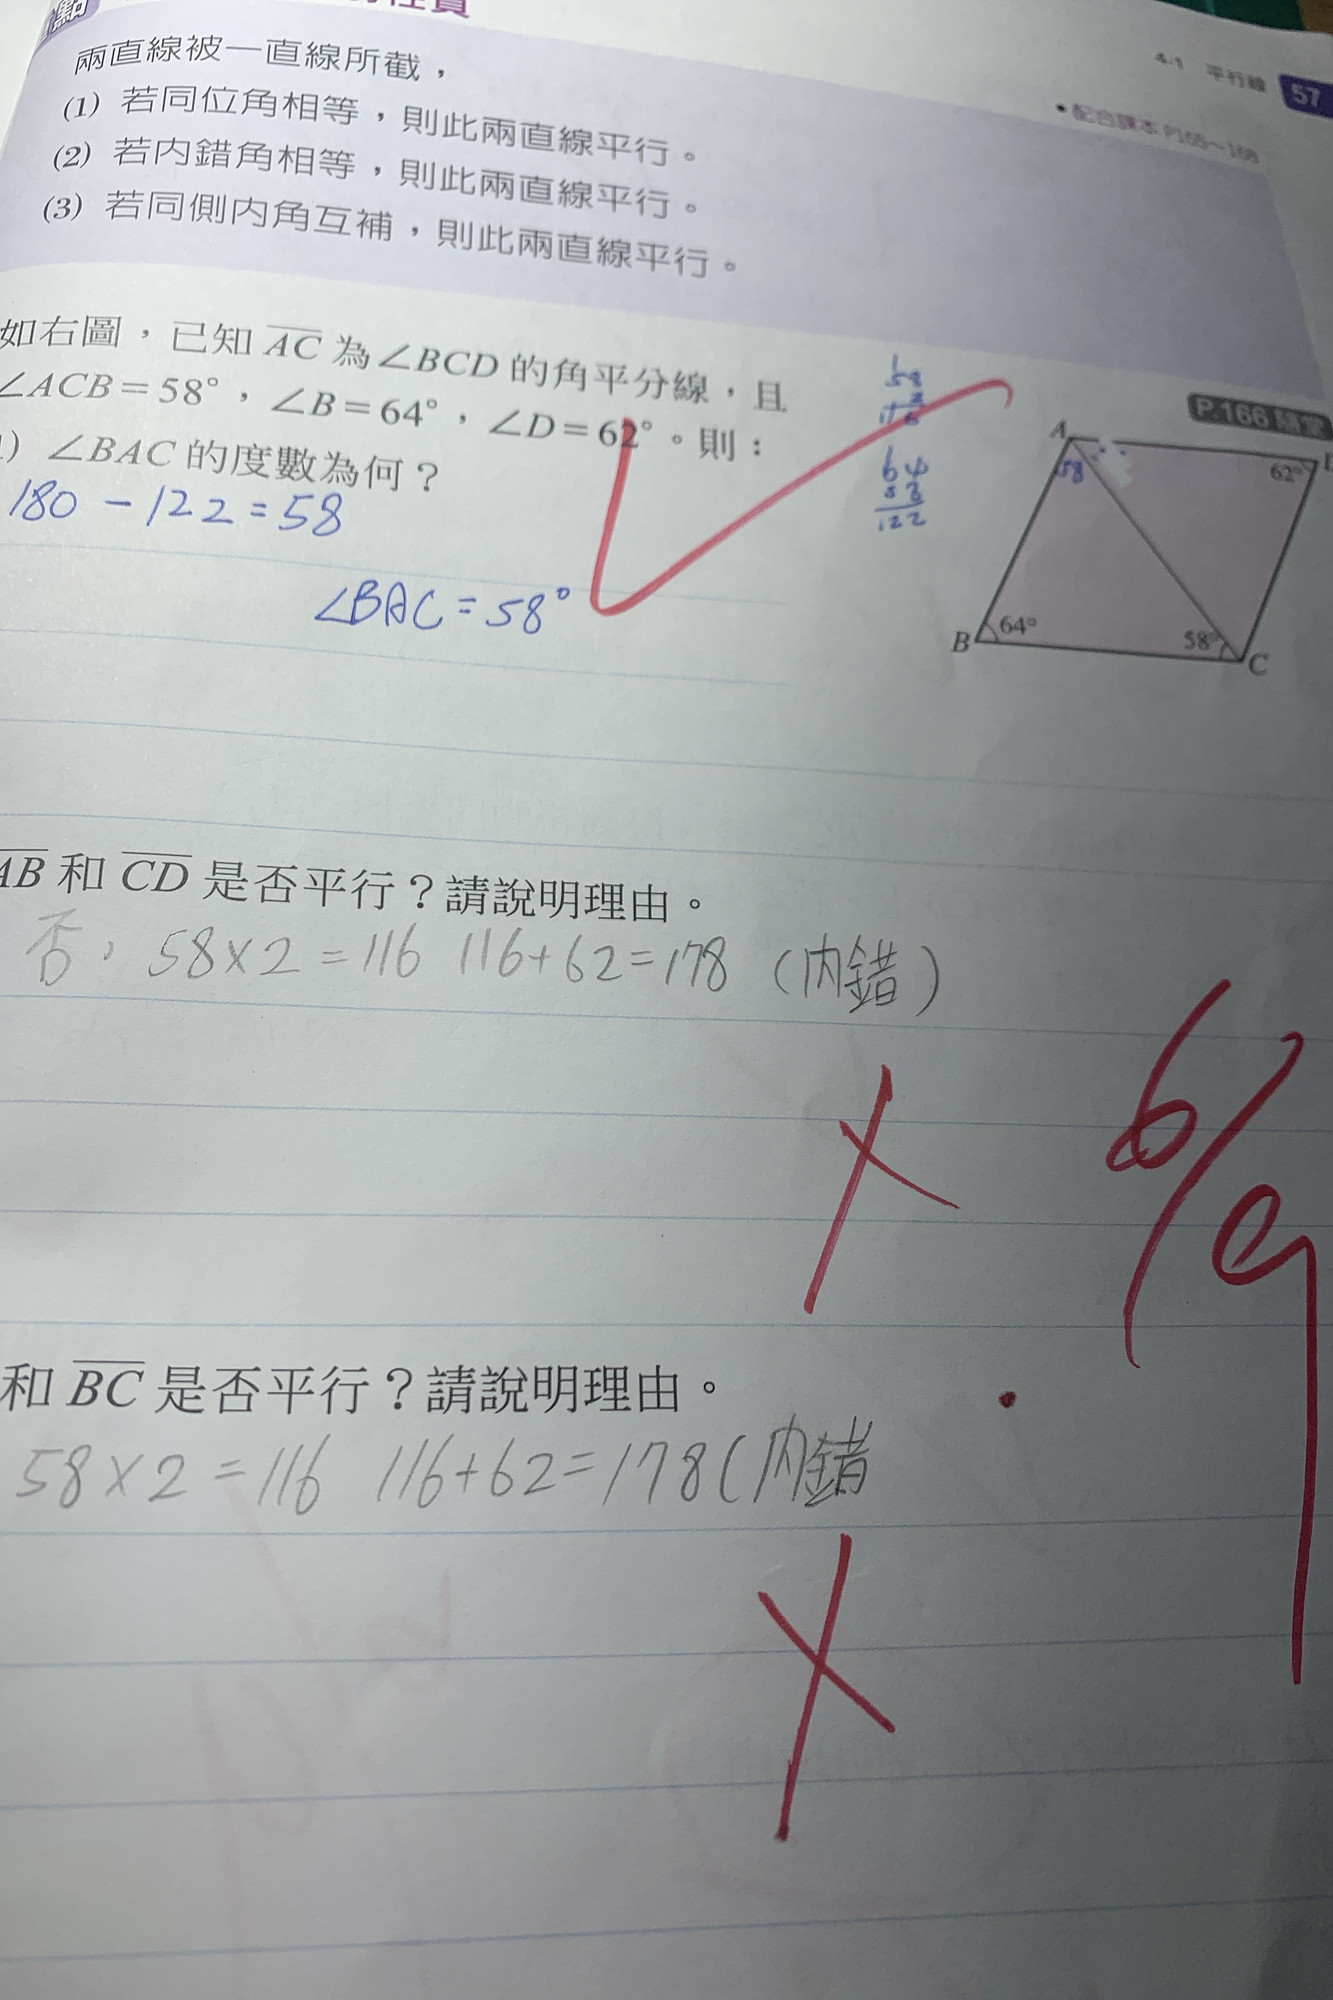 點
性質
4-1 平行線 57
•配合課本 P165～168
兩直線被一直線所截，
(1) 若同位角相等，則此兩直線平行。
(2) 若內錯角相等，則此兩直線平行。
(3) 若同側內角互補，則此兩直線平行。
如右圖，已知 AC 為∠BCD 的角平分線，且
∠ACB＝58°，∠B＝64°，∠D＝62°。則：
) ∠BAC 的度數為何？
180 - 122 = 58
∠BAC = 58°
58
64
58
122
P.166
A
58
62°
B
64°
58°
C
AB 和 CD 是否平行？請說明理由。
否， 58×2=116 116+62=178 (內錯)
6/9
和 BC 是否平行？請說明理由。
58×2=116 116+62=178(內錯